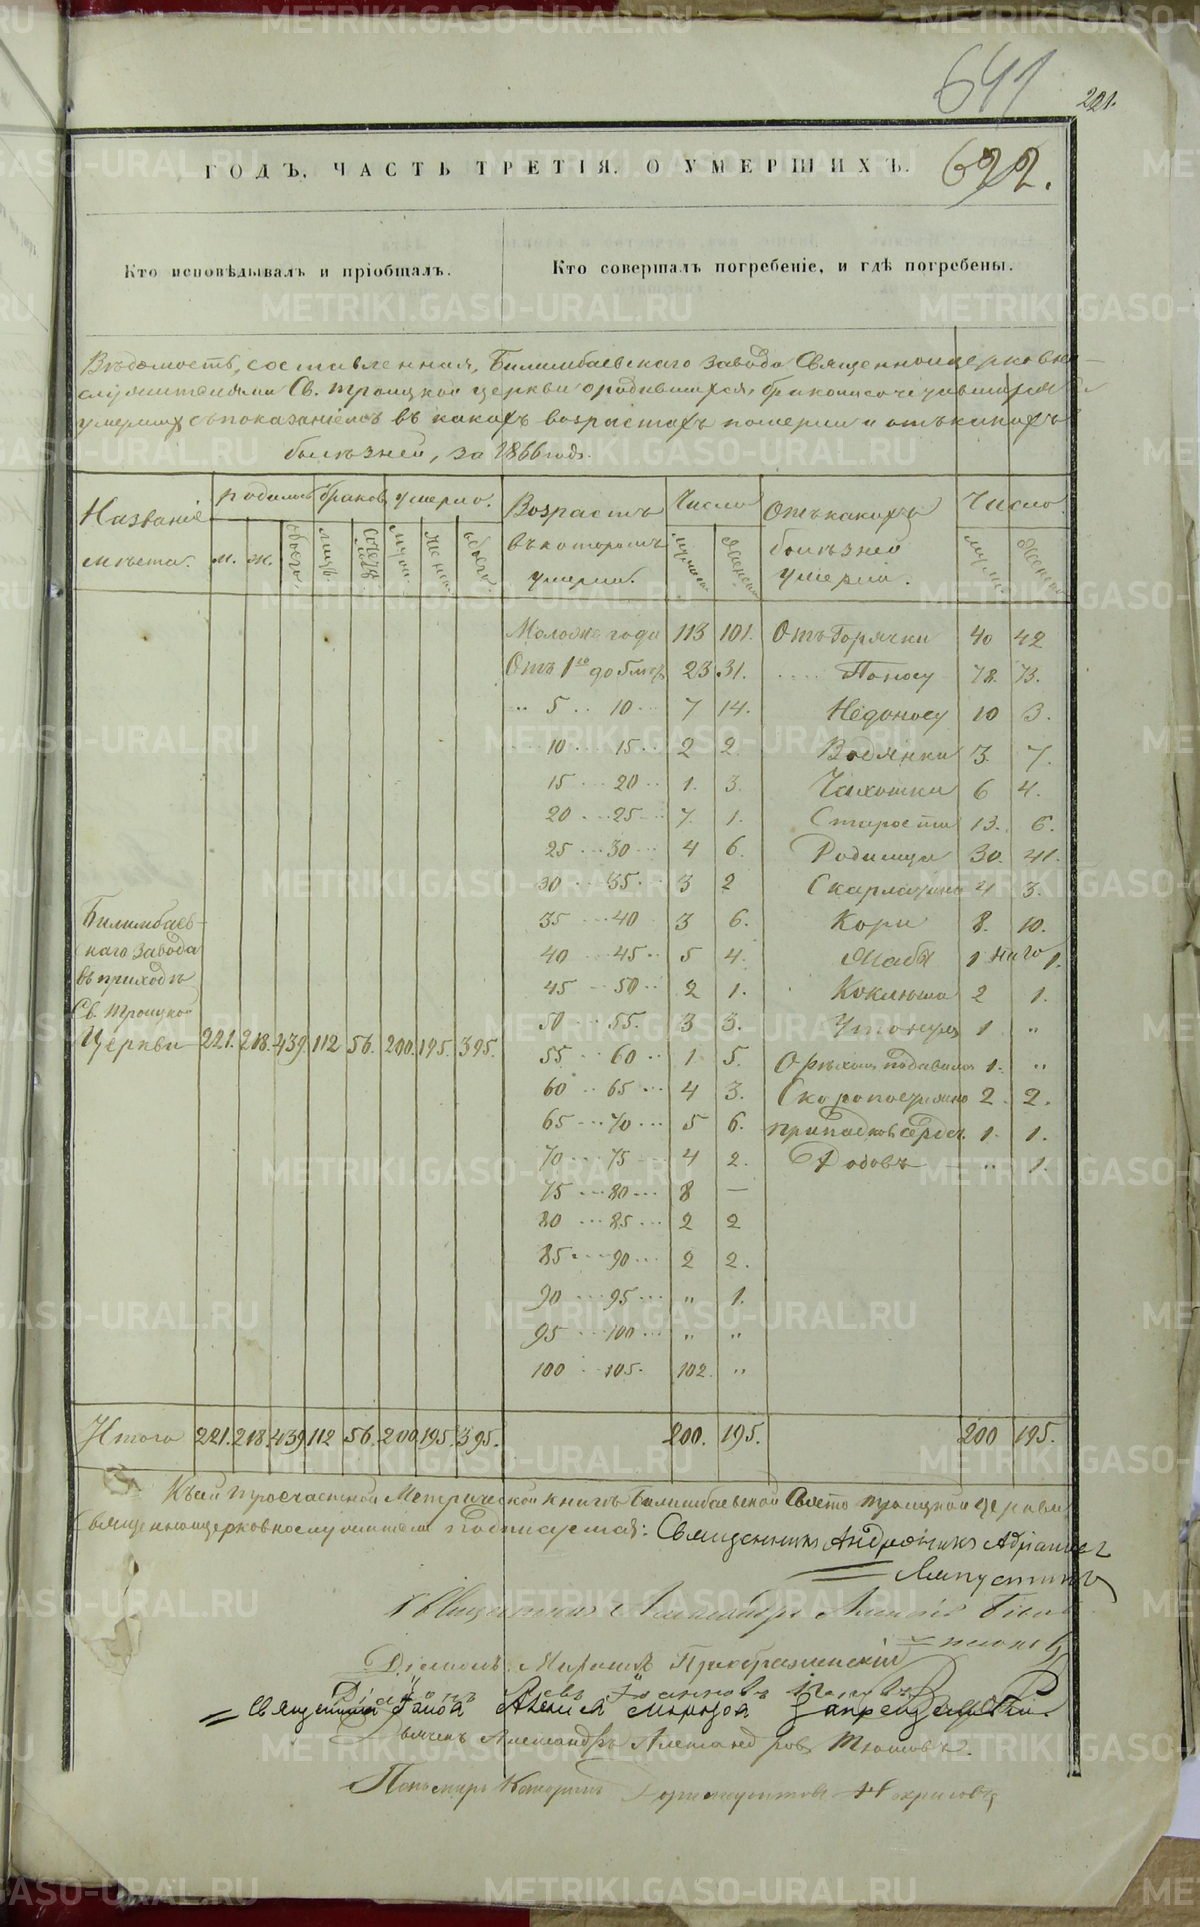 641
221.
ГОДЪ, ЧАСТЬ ТРЕТІЯ. О УМЕРШИХЪ.
622.
Кто исповѣдывалъ и пріобщалъ.
Кто совершалъ погребеніе, и гдѣ погребены.
Вѣдомость, составленная, Билимбаевскаго завода Священноцерковно-
служителями Св. Троицкой церкви о родившихся, бракосочетавшихся и
умершихъ съ показаніемъ въ какихъ возрастахъ померли и отъ какихъ
болѣзней, за 1866 годъ.
Названіе мѣста. родилось браковъ умерло. Возрастъ въ которомъ умерли. Число Отъ какихъ болѣзней умерли. Число
м. ж. обоего лицъ. муж. жен. обоего муж. женск. муж. женск.
Моложе года 113 101. Отъ Горячки 40 42
Отъ 1го до 5 лѣтъ 23 31. Поносу 78. 73.
" 5 10 7 14. Недоносу 10 3.
10 15 2 2 Водянки 3. 7.
15 20 1. 3. Чахотки 6 4.
20 25 7. 1. Старости 13. 6.
25 30 4 6. Родимца 30. 41.
30 35 3 2 Скарлатина 4 3.
35 40 3 6. Кори 8. 10.
40 45 5 4. Жабы 1 1.
45 50 2 1. Коклюша 2 1.
50 55. 3 3. Утонулъ 1 "
55 60 1 5. Орѣхомъ подавился 1. "
60 65 4 3. Скоропостижно 2 2.
65 70 5 6. припадков сердеч. 1. 1.
70 75 4 2. Родовъ " 1.
75 80 8 —
80 85 2 2
85 90 2 2.
90 95 " 1.
95 100 " "
100 105. 102. "
Билимбаев-
скаго завода
въ приходѣ
Св. Троицкой
Церкви 221. 218. 439. 112 56. 200. 195. 395.
Итого 221. 218. 439. 112 56. 200 195. 395. 200. 195. 200 195.
Къ сей Метрической книгѣ Билимбаевской Свято Троицкой церкви
Священноцерковнослужители подписуемся: Священникъ Андроникъ Адріановъ
Ляпустинъ
Священникъ Александръ
Діаконъ Миронъ Преображенскій
Діаконъ
Священникъ
Дьячекъ Александръ Александровъ Тюшовъ.
Пономарь Некрасовъ
METRIKI.GASO-URAL.RU